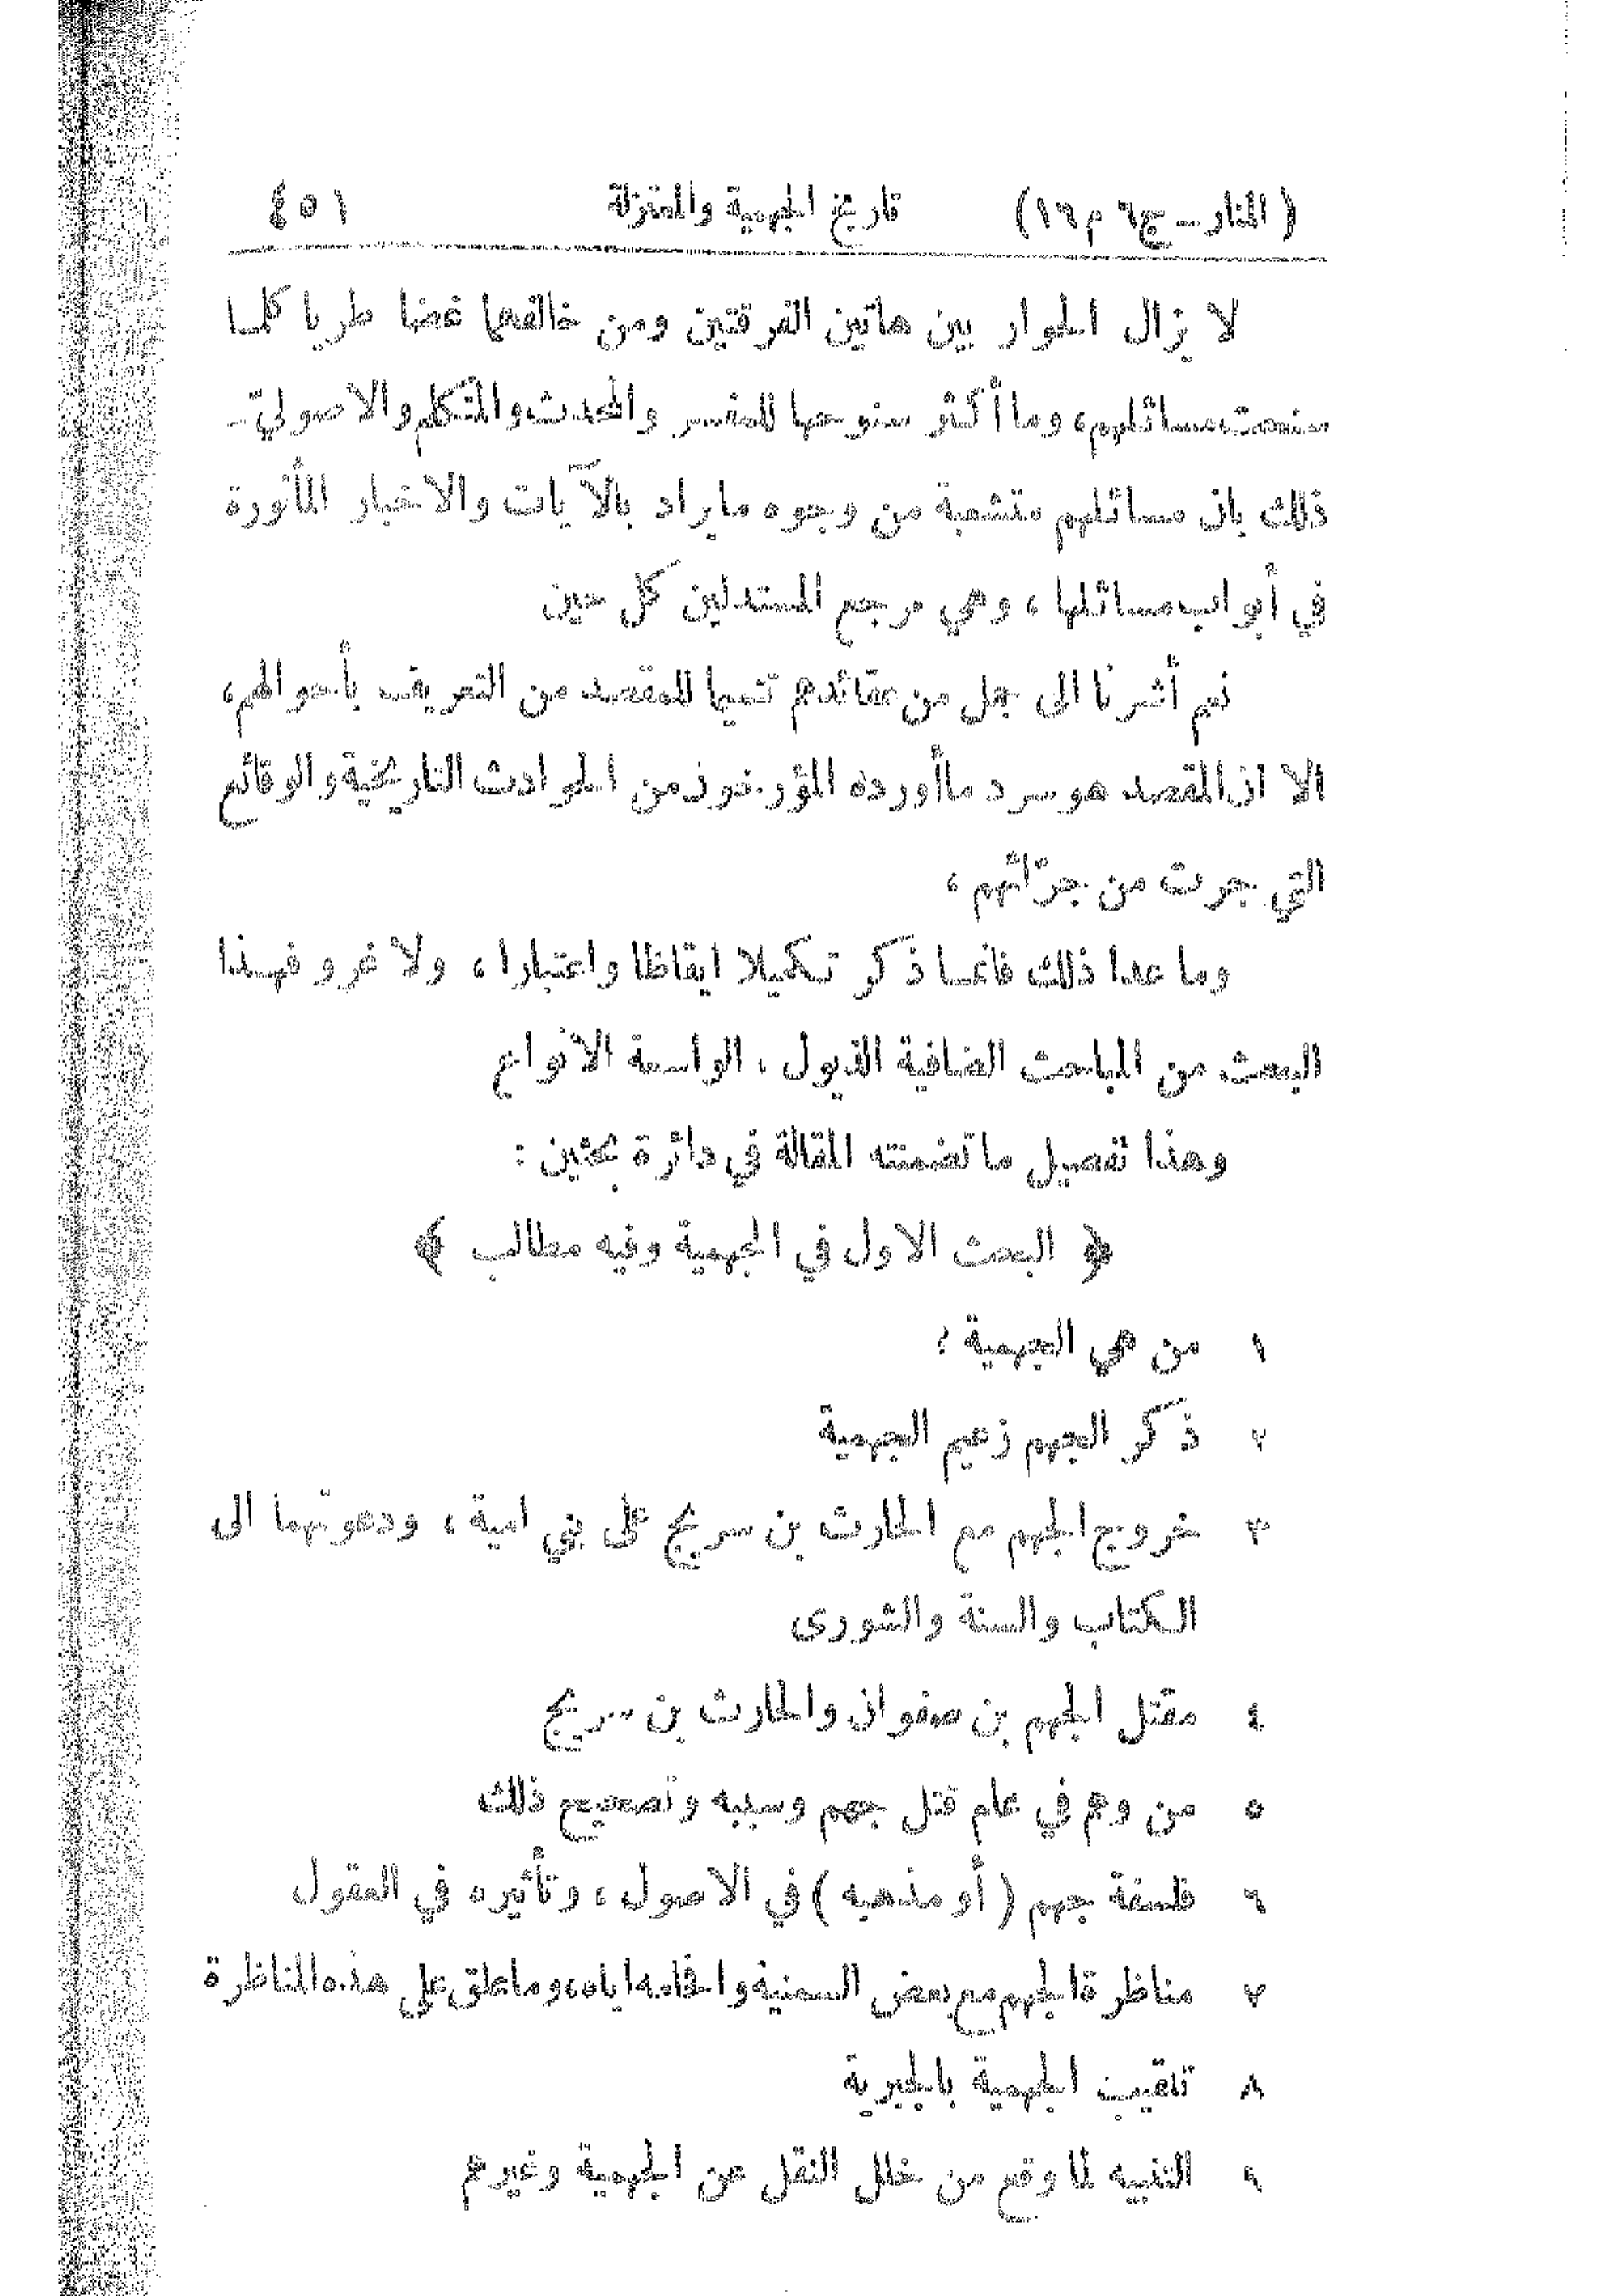 (المنار – ج٦ م ١٦) تاريخ الجهمية والمعتزلة ٤٥١
لا يزال الحوار بين هاتين الفرقتين ومن خالفهما غضا طريا كلما
سنحت مسائلهم، وما أكثر سنوحها للمفسر والمحدث والمتكلم والاصوليّ –
ذلك بان مسائلهم متشعبة من وجوه ما يراد بالآيات والاخبار المأثورة
في أبواب مسائلها ، وهي مرجع المستدلين كل حين
نعم أشرنا الى جمل من عقائدهم تتميما للمقصد من التعريف بأحوالهم،
الا ان المقصد هو سرد ما أورده المؤرخون من الحوادث التاريخية والوقائع
التي جرت من جرّائهم ،
وما عدا ذلك فانما ذكر تكميلا ايقاظا واعتبارا ، ولا غرو فهذا
البحث من المباحث الضافية الذيول ، الواسعة الانواع
وهذا تفصيل ما تضمنته المقالة في دائرة بحثين :
﴿ البحث الاول في الجهمية وفيه مطالب ﴾
١ من هي الجهمية ؟
٢ ذكر الجهم زعيم الجهمية
٣ خروج الجهم مع الحارث بن سريج على بني امية ، ودعوتهما الى
الكتاب والسنة والشورى
٤ مقتل الجهم بن صفوان والحارث بن سريج
٥ من وهم في عام قتل جهم وسببه وتصحيح ذلك
٦ فلسفة جهم ( أو مذهبه ) في الاصول ، وتأثيره في العقول
٧ مناظرة الجهم مع بعض السمنية وافحامه اياه، وما علق على هذه المناظرة
٨ تلقيب الجهمية بالجبرية
٩ التنبيه لما وقع من خلل النقل عن الجهمية وغيرهم